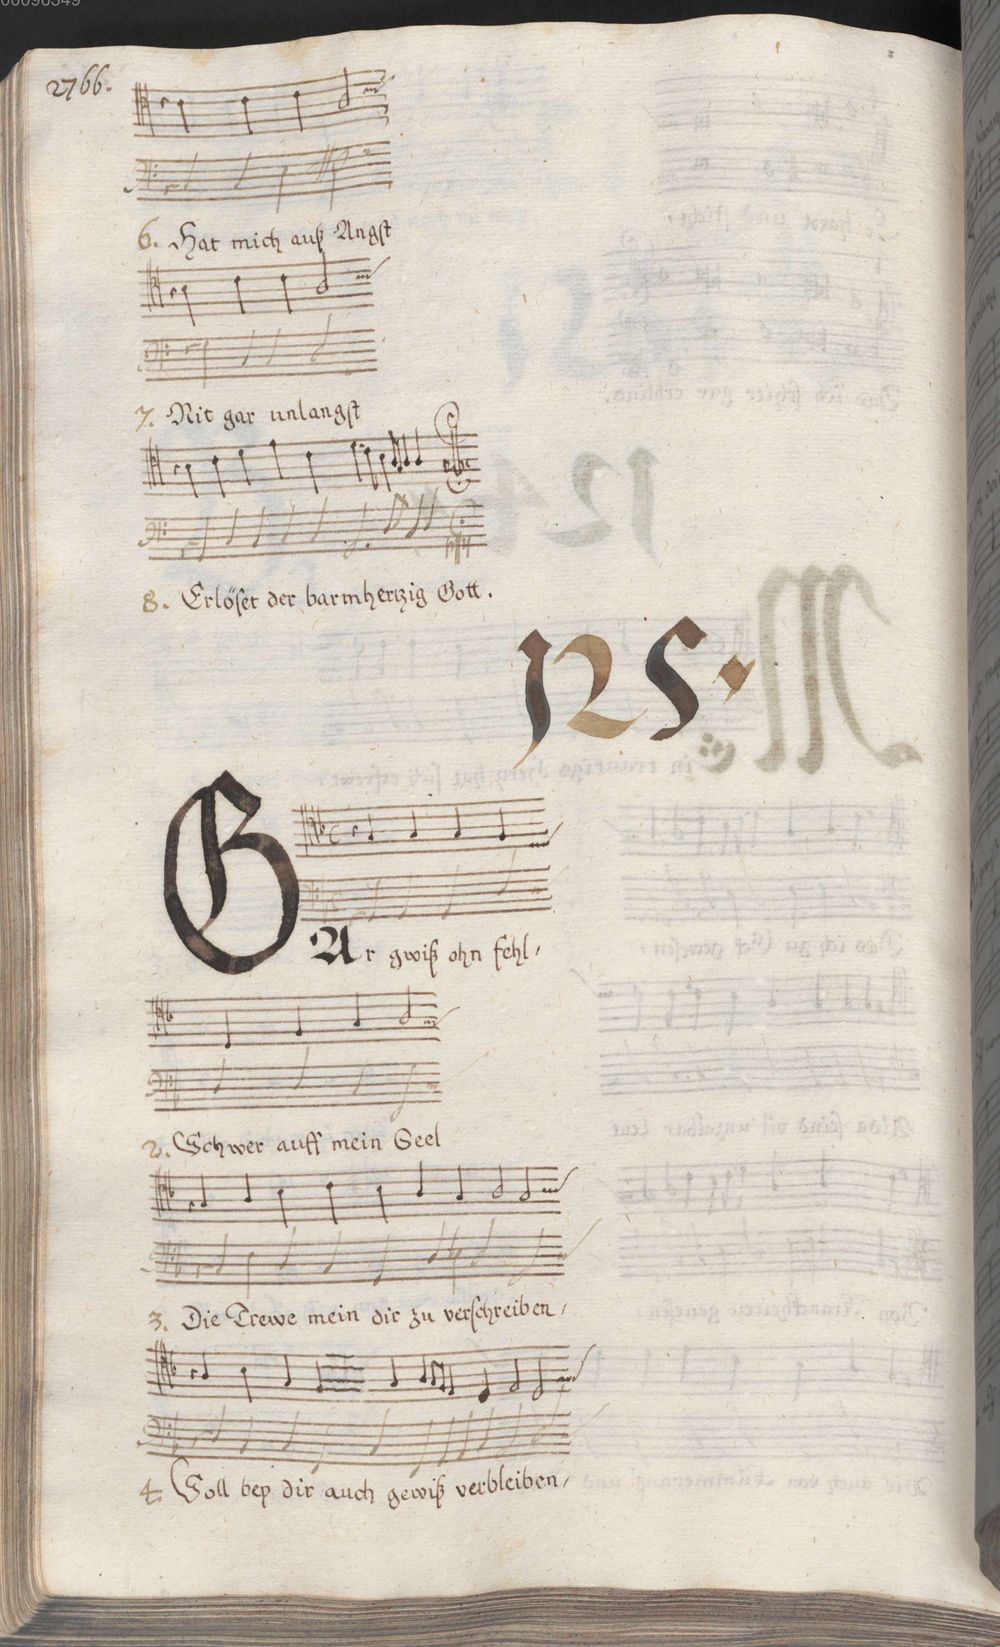 2766.
6. Hat mich auß Angst
7. Nit gar unlangst
8. Erlöset der barmhertzig Gott.
125.
GAr gwiß ohn fehl,
2. Schwer auff mein Seel
3. Die Trewe mein dir zu verschreiben,
4. Soll bey dir auch gewiß verbleiben,